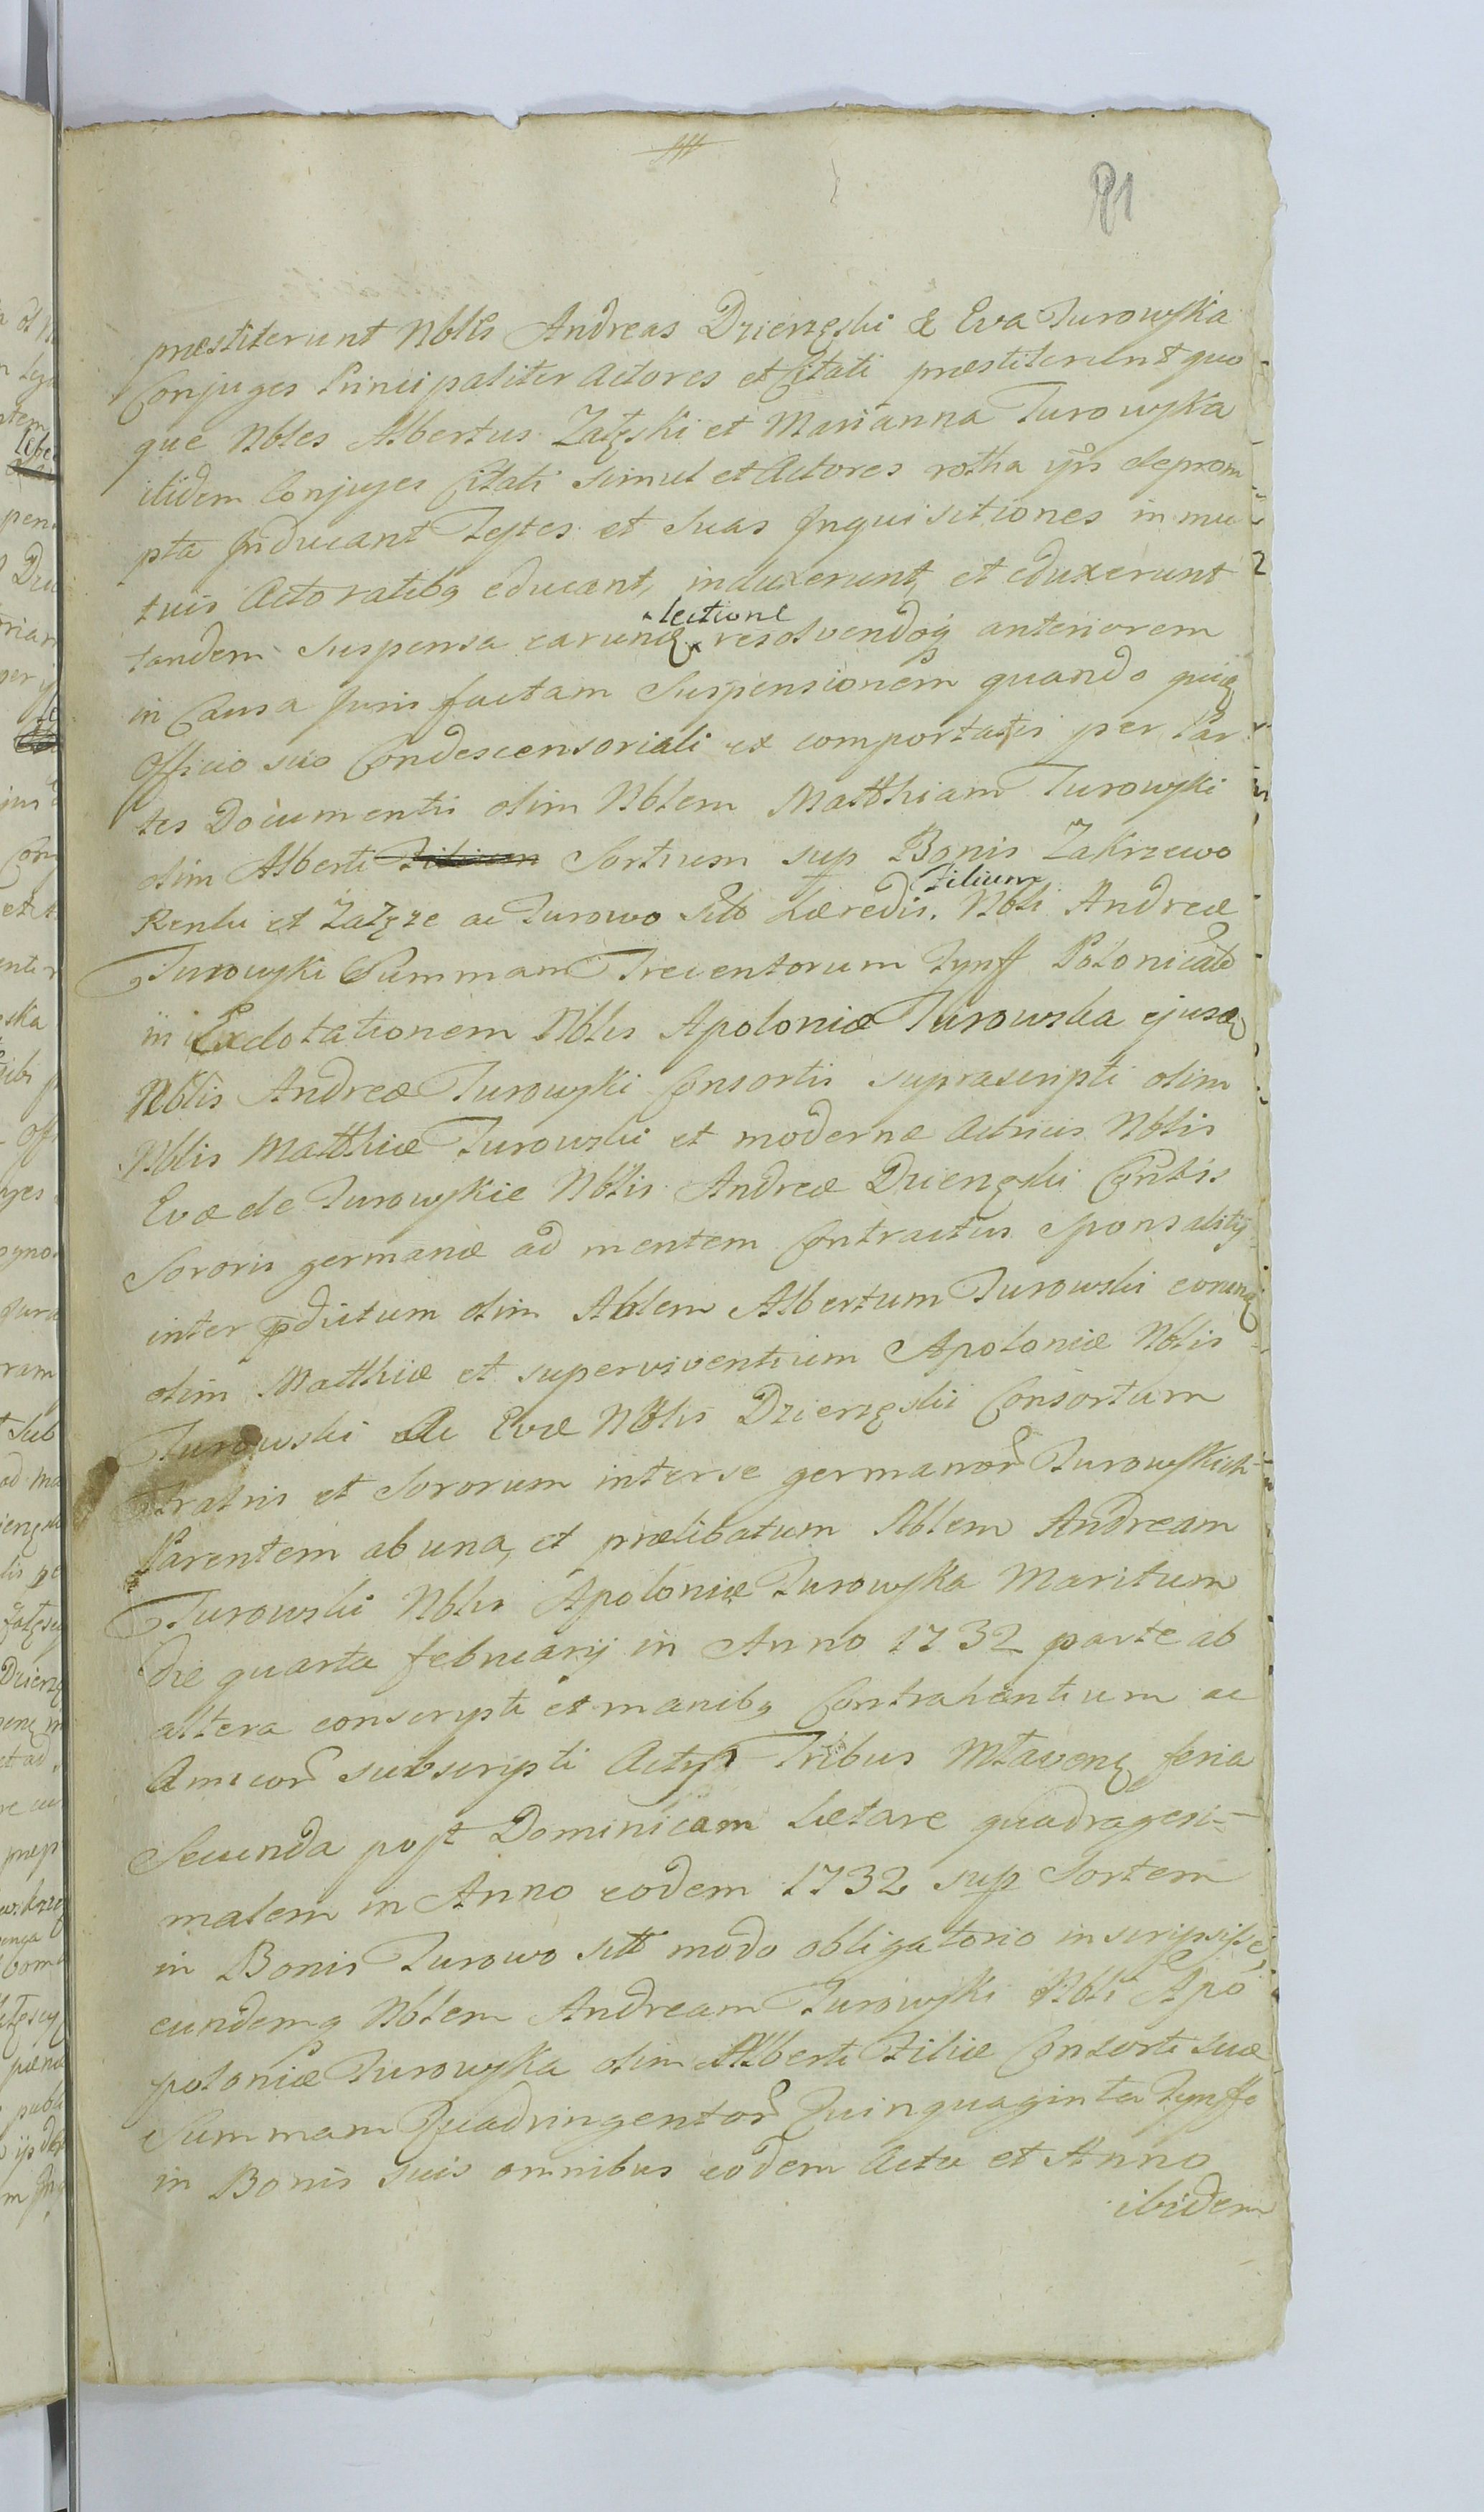 91
præstiterunt Nbles Andreas Dzienzęski & Eva Turowska
Conjuges Principaliter Actores et Citati præstiterunt quo
que Nbles Albertus Załęski et Marianna Turowska
itidem Conjuges Citati simul et Actores rotha ipsis deprom
pta Inducant Testes et Suas Inquisitiones in mu
tuis Actoratibq educant, induxerunt, et eduxerunt
lectione
tandem Suspensa earundę resolvendoq anteriorem
in Causa Juris factam Suspensionem quando quidę
Officio suo Condescensoriali ex comportatis per Par
tes Documentis olim Nblem Matthiam Turowski
olim Alberti Sortium sup Bonis Zakrzewo
Filium
Kenlu et Załęze ac Turowo sitto Hæredis. Nbli Andreæ
Turowski Summam Trecentorum Tynff Polonicaled
in Exdotationem Nblis Apoloniæ Turowska ejusdę
Nblis Andreæ Turowski Consortis suprascripti olim
Nblis Matthiæ Turowski et modernæ Actricis Nblis
Evæ de Turowskie Nblis Andreæ Dzienzęski Contis
Sororis germanæ ad mentem Contractus sponsalitij
inter pdictum olim Nblem Albertum Turowski eorundę
olim Matthiæ et superviventium Apoloniæ Nblis
Turowski Ac Evæ Nblis Dzienzęski Consortum
Fratris et Sororum inter se germanor Turowskich
Parentem ab una, et prælibatum Nblem Andream
Turowski Nblis Apoloniæ Turowska Maritum
die quarta februarij in Anno 1732 parte ab
altera conscripti et manibq Contrahentium ac
Amicor subscripti Actisq Tribus Mtaveną feria
Secunda post Dominicam Lætare quadragesi-
malem in Anno eodem 1732 sup Sortem
in Bonis Turowo sitt modo obligatorio inscripsisse,
eundemq Nblem Andream Turowski Nbli Apo
poloniæ Turowska olim Alberti Filiæ Consorti suæ
Summam Quadringentor Quinquaginta Tynffo
in Bonis suis omnibus eodem Actu et Anno
ibidem